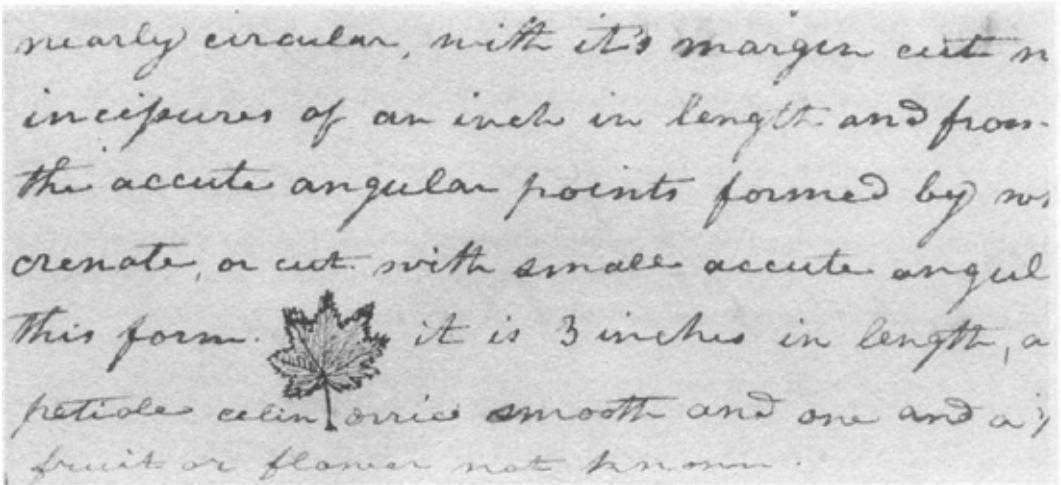 nearly circular, with it's margin cut
incissures of an inch in length and from
the accute angular points formed by
crenate, or cut with small accute angul
this form. it is 3 inches in length, a
petiole celindrric smooth and one and a
fruit or flower not known.